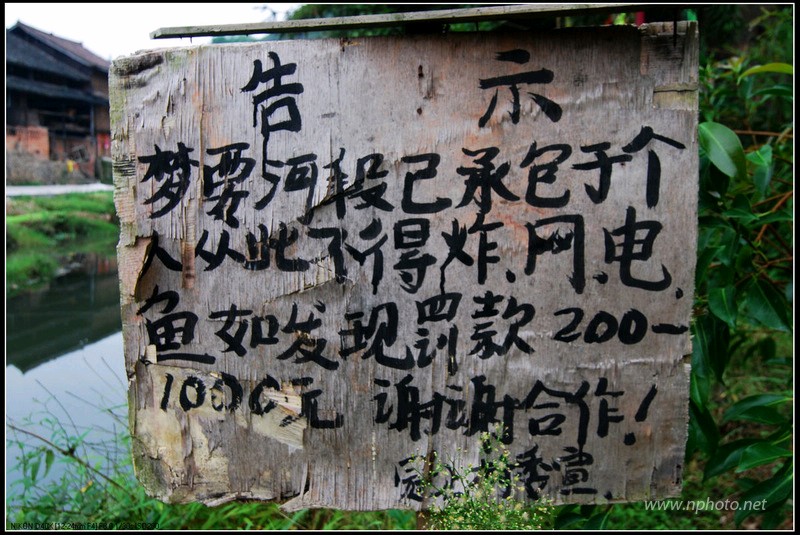 告 示
梦雾河段已承包于个
人从此不得炸.网.电.
鱼如发现罚款200-
1000元 谢谢合作!
www.nphoto.net